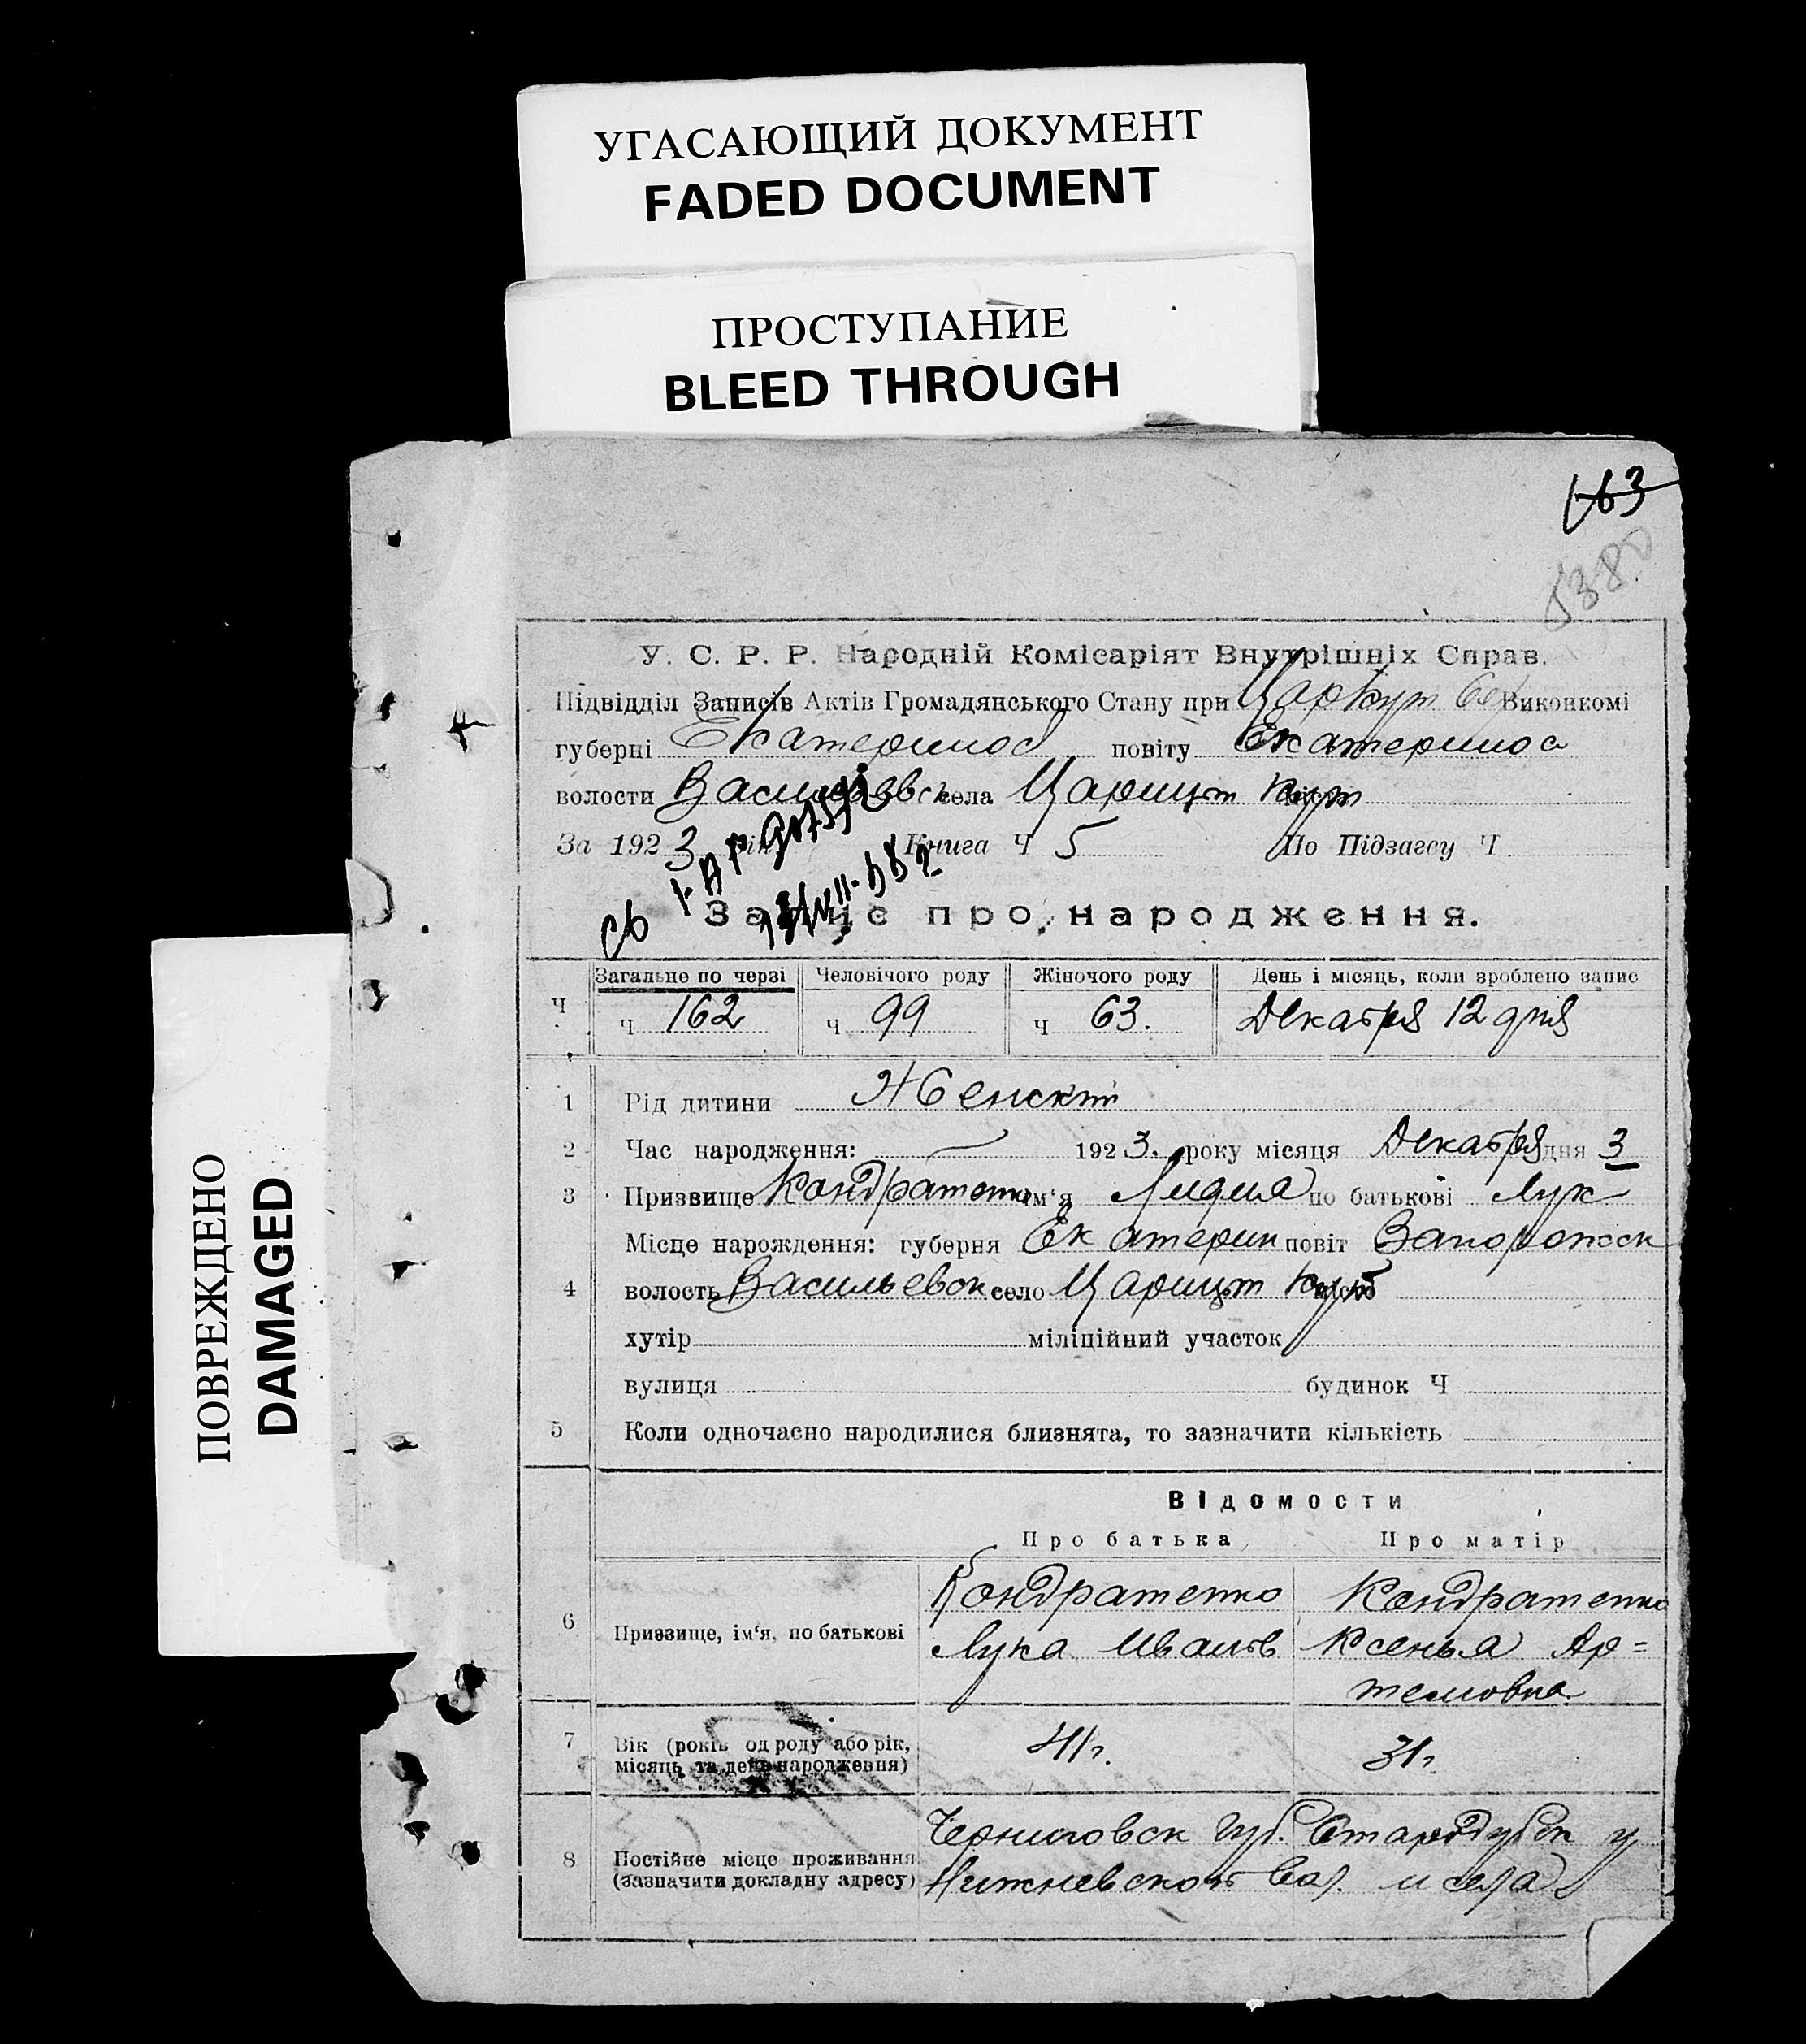 УГАСАЮЩИЙ ДОКУМЕНТ
FADED DOCUMENT
ПРОСТУПАНИЕ
BLEED THROUGH
ПОВРЕЖДЕНО
DAMAGED
163
5380
У. С. Р. Р. Народній Комісаріят Внутрішніх Справ.
Підвідділ Записів Актів Громадянського Стану при Царкут Виконкомі
губерні Екатеринос повіту Екатеринос
волости Васильевск села Царицын Кут
За 1923 рік Книга Ч 5 По Підзагсу Ч
Запис про народження.
Загальне по черзі Человічого роду Жіночого роду День і місяць, коли зроблено запис
Ч Ч 162 Ч 99 Ч 63. Декабря 12 дня
1 Рід дитини Женский
2 Час народження: 1923. року місяця Декабря дня 3
3 Призвище Кондратенко ім'я Лидия по батькові Лук
Місце нарождення: губерня Екатерин повіт Запорожск
4 волость Васильевск село Царицын Кут місто
хутір міліційний участок
вулиця будинок Ч
5 Коли одночасно народилися близнята, то зазначити кількість
Відомости
Про батька Про матір
Кондратенко Кондратенко
6 Призвище, ім'я, по батькові Лука Иванов Ксенья Ар=
темовна
7 Вік (років од роду або рік, 41 г. 31 г.
місяць та день народження)
Черниговск губ. Стародубск у
8 Постійне місце проживання
(зазначити докладну адресу) вол. и села